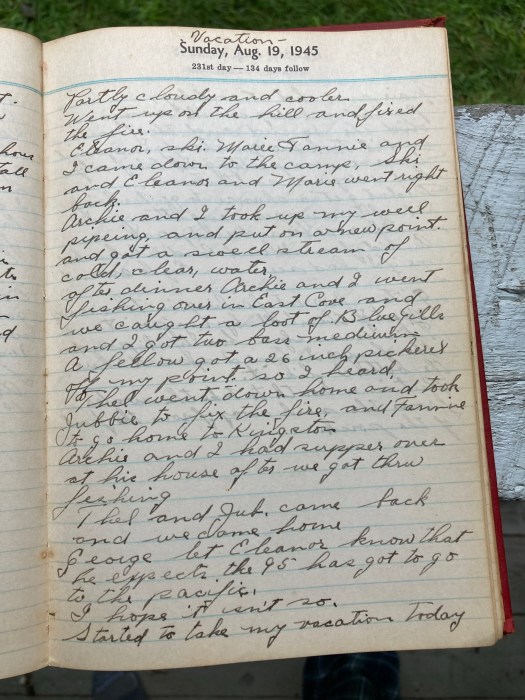 Vacation-
Sunday, Aug. 19, 1945
231st day — 134 days follow
Partly cloudy and cooler
Went up on the hill and fired
the fire.
Eleanor, ski. Marie Fannie and
I came down to the camp, Ski
and Eleanor and Marie went right
back.
Archie and I took up my well
pipeing, and put on a new point.
and got a swell stream of
cold, clear, water.
after dinner Archie and I went
fishing over in East Cove and
we caught a boot of Blue gills
and I got two bass medium
A fellow got a 26 inch pickerel
off my point. so I heard.
Thel went down home and took
Jubbie to fix the fire, and Fannie
to go home to Kingston
Archie and I had supper over
at his house after we got thru
fishing
Thel and Jub. came back
and we came home
George let Eleanor know that
he expects the 95 has got to go
to the pacific.
I hope it isn't so.
Started to take my vacation today